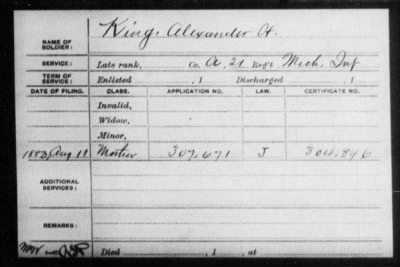 NAME OF SOLDIER: King, Alexander H.
SERVICE: Late rank, Co. A, 21 Reg't Mich. Inf
TERM OF SERVICE: Enlisted , 1 Discharged , 1
DATE OF FILING. CLASS. APPLICATION NO. LAW. CERTIFICATE NO.
Invalid,
Widow,
Minor,
1883, Aug 11 Mother 307.671 J 304.846
ADDITIONAL SERVICES:
REMARKS:
Died , 1 , at